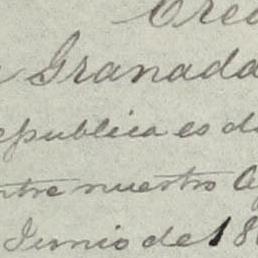 Crea
Granada
epublica es d
ntre nuestro
Junio de 18